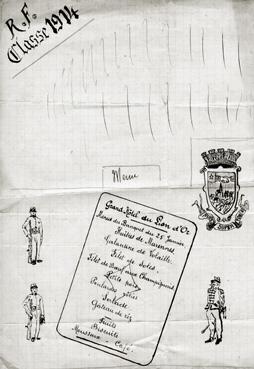 R.F.
Classe 1914
Menu
Grand Hôtel du Lion d'Or
Menu du Banquet du 25 Janvier
Huîtres de Marennes
Galantine de Volaille
Filet de Soles
Filet de Bœuf aux Champignons
Petits pois
Poulardes rôties
Salade
Gâteau de riz
Fruits
Biscuits
Mousseux - Café